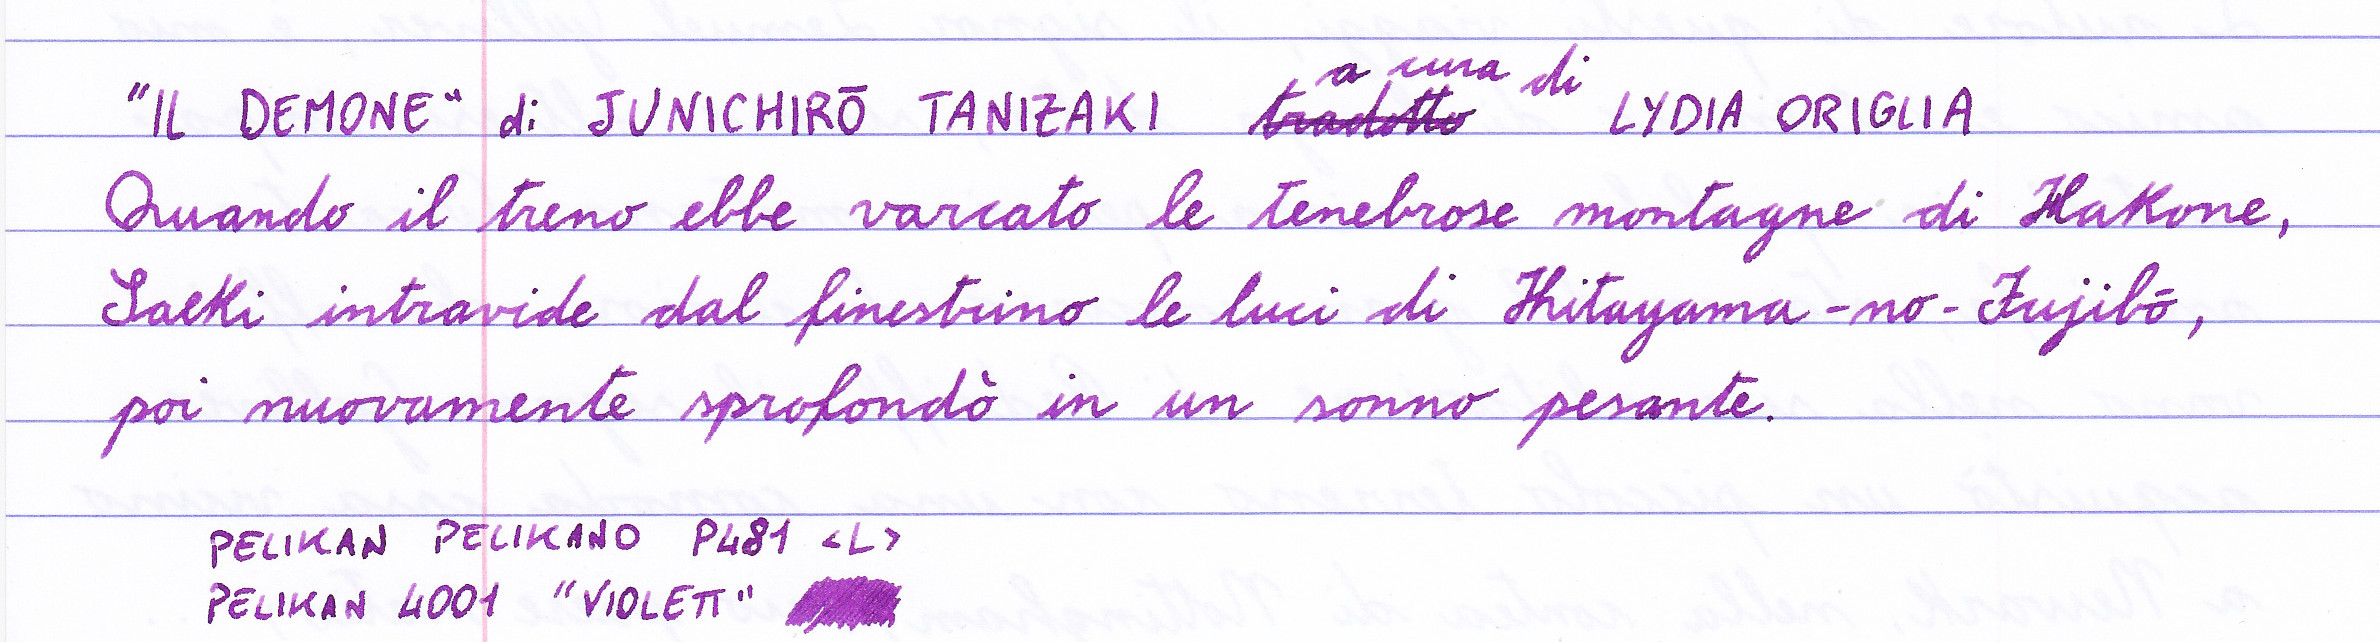 "IL DEMONE" di JUNICHIRŌ TANIZAKI tradotto a cura di LYDIA ORIGLIA
Quando il treno ebbe varcato le tenebrose montagne di Hakone,
Saeki intravide dal finestrino le luci di Kitayama-no-Fujibō,
poi nuovamente sprofondò in un sonno pesante.
PELIKAN PELIKANO P481 <L>
PELIKAN 4001 "VIOLETT"